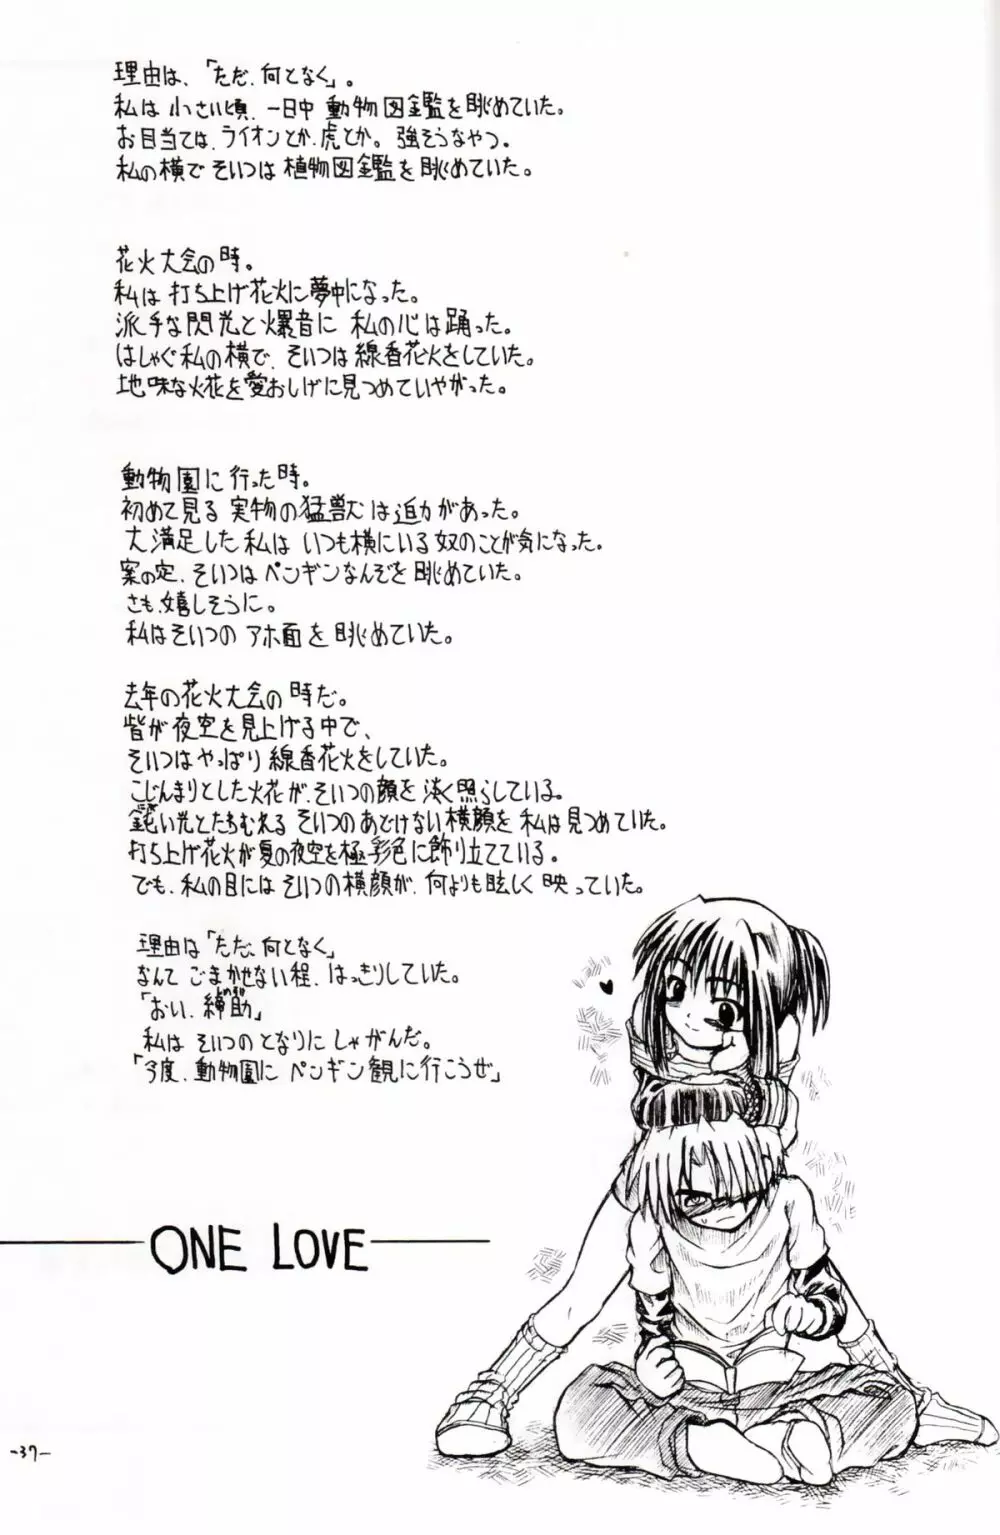 理由は、「ただ、何となく」。
私は小さい頃、一日中 動物図鑑を眺めていた。
お目当ては、ライオンとか、虎とか。強そうなやつ。
私の横で そいつは 植物図鑑を眺めていた。
花火大会の時。
私は 打ち上げ花火に夢中になった。
派手な閃光と爆音に 私の心は踊った。
はしゃぐ私の横で、そいつは線香花火をしていた。
地味な火花を愛おしげに見つめていやがった。
動物園に行った時。
初めて見る 実物の猛獣は迫力があった。
大満足した私は いつも横にいる奴のことが気になった。
案の定、そいつはペンギンなんぞを眺めていた。
さも、嬉しそうに。
私はそいつの アホ面を眺めていた。
去年の花火大会の時だ。
皆が夜空を見上げる中で、
そいつはやっぱり 線香花火をしていた。
こじんまりとした火花が、そいつの顔を淡く照らしている。
鈍い光とたわむれる そいつのあどけない横顔を 私は見つめていた。
打ち上げ花火が夏の夜空を極彩色に飾り立てている。
でも、私の目にはそいつの横顔が、何よりも眩しく映っていた。
理由は「ただ、何となく」
なんて ごまかせない程、はっきりしていた。
「おい、助」
私は そいつの となりに しゃがんだ。
「今度、動物園に ペンギン観に行こうぜ」
ONE LOVE
-37-